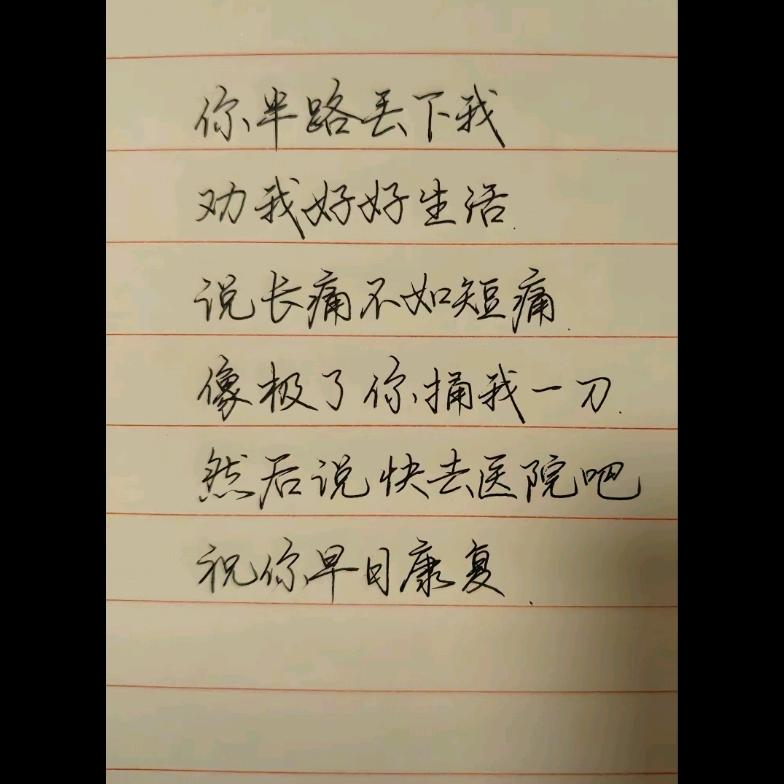 你半路丢下我
劝我好好生活.
说长痛不如短痛.
像极了你捅我一刀.
然后说快去医院吧
祝你早日康复.